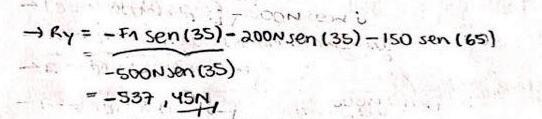 → Ry = -F1 sen (35) - 200N sen (35) - 150 sen (65)
=
-500N sen (35)
= -537,45N